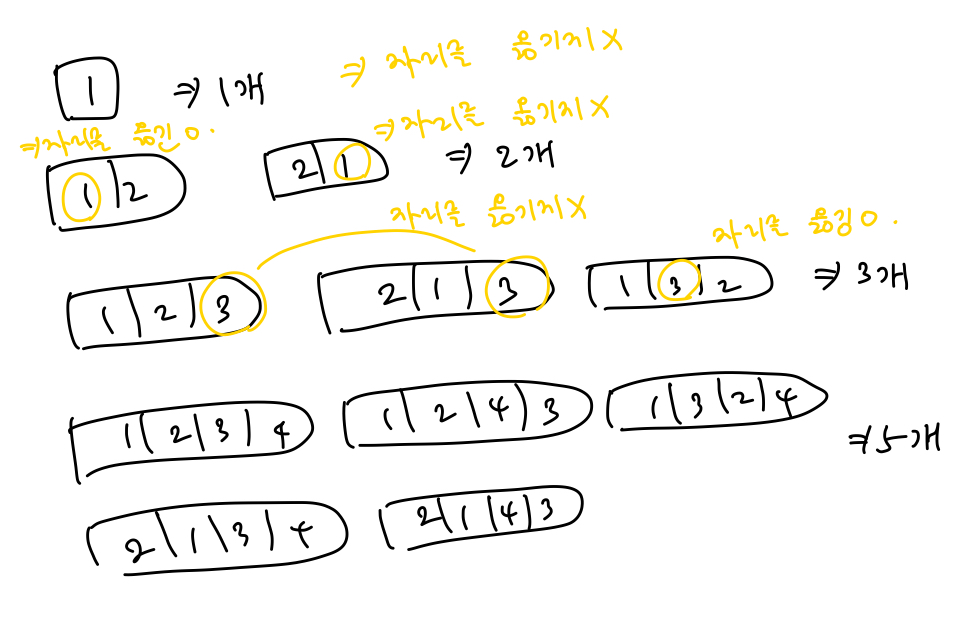 1 ⇒ 1개 ⇒ 자리를 옮기지 X
⇒ 자리를 옮긴 O. ⇒ 자리를 옮기지 X
1 | 2 2 | 1 ⇒ 2개
자리를 옮기지 X 자리를 옮김 O.
1 | 2 | 3 2 | 1 | 3 1 | 3 | 2 ⇒ 3개
1 | 2 | 3 | 4 1 | 2 | 4 | 3 1 | 3 | 2 | 4 ⇒ 5개
2 | 1 | 3 | 4 2 | 1 | 4 | 3